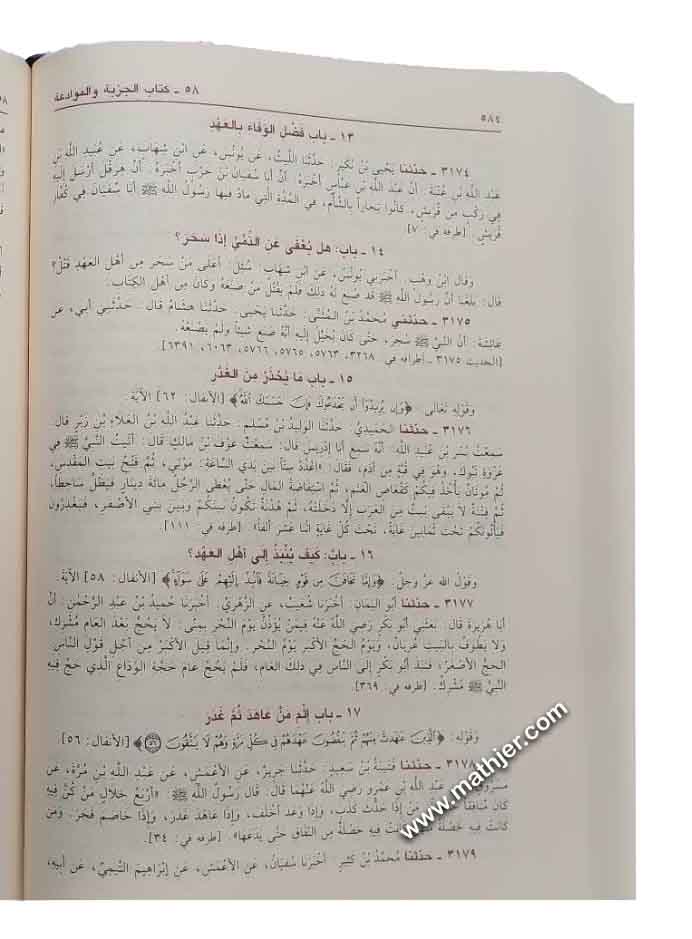 ٥٨٤
٥٨ - كتاب الجزية والموادعة
١٣ - باب فَضْلِ الوَفَاءِ بالعَهْدِ
٣١٧٤ - حدّثنا يَحْيَى بْنُ بُكَيْرٍ: حَدَّثَنَا اللَّيْثُ، عَنْ يُونُسَ، عَنِ ابْنِ شِهَابٍ، عَنْ عُبَيْدِ اللهِ بْنِ
عَبْدِ اللهِ بْنِ عُتْبَةَ: أَنَّ عَبْدَ اللهِ بْنَ عَبَّاسٍ أَخْبَرَهُ: أَنَّ أَبَا سُفْيَانَ بْنَ حَرْبٍ أَخْبَرَهُ: أَنَّ هِرَقْلَ أَرْسَلَ إِلَيْهِ
فِي رَكْبٍ مِنْ قُرَيْشٍ، كَانُوا تِجَاراً بِالشَّأْمِ، فِي المُدَّةِ الَّتِي مَادَّ فِيهَا رَسُولُ اللهِ ﷺ أَبَا سُفْيَانَ فِي كُفَّارِ
قُرَيْشٍ. [طرفه في: ٧]
١٤ - بابٌ: هل يُعْفَى عَنِ الذِّمِّيِّ إِذَا سَحَرَ؟
وَقَالَ ابْنُ وَهْبٍ: أَخْبَرَنِي يُونُسُ، عَنِ ابْنِ شِهَابٍ: سُئِلَ: أَعَلَى مَنْ سَحَرَ مِنْ أَهْلِ العَهْدِ قَتْلٌ؟
قَالَ: بَلَغَنَا أَنَّ رَسُولَ اللهِ ﷺ قَدْ صُنِعَ لَهُ ذلِكَ فَلَمْ يَقْتُلْ مَنْ صَنَعَهُ وَكَانَ مِنْ أَهْلِ الكِتَابِ.
٣١٧٥ - حدّثني مُحَمَّدُ بْنُ المُثَنَّى: حَدَّثَنَا يَحْيَى: حَدَّثَنَا هِشَامٌ قَالَ: حَدَّثَنِي أَبِي، عَنْ
عَائِشَةَ: أَنَّ النَّبِيَّ ﷺ سُحِرَ، حَتَّى كَانَ يُخَيَّلُ إِلَيْهِ أَنَّهُ صَنَعَ شَيْئاً وَلَمْ يَصْنَعْهُ.
[الحديث ٣١٧٥ - أطرافه في: ٣٢٦٨، ٥٧٦٣، ٥٧٦٥، ٥٧٦٦، ٦٠٦٣، ٦٣٩١]
١٥ - باب مَا يُحْذَرُ مِنَ الغَدْرِ
وَقَوْلِهِ تَعَالَى: ﴿وَإِن يُرِيدُوٓا۟ أَن يَخْدَعُوكَ فَإِنَّ حَسْبَكَ ٱللَّهُ﴾ [الأنفال: ٦٢] الآيَةَ.
٣١٧٦ - حدّثنا الحُمَيْدِيُّ: حَدَّثَنَا الوَلِيدُ بْنُ مُسْلِمٍ: حَدَّثَنَا عَبْدُ اللهِ بْنُ العَلَاءِ بْنِ زَبْرٍ قَالَ:
سَمِعْتُ بُسْرَ بْنَ عُبَيْدِ اللهِ: أَنَّهُ سَمِعَ أَبَا إِدْرِيسَ قَالَ: سَمِعْتُ عَوْفَ بْنَ مَالِكٍ قَالَ: أَتَيْتُ النَّبِيَّ ﷺ فِي
غَزْوَةِ تَبُوكَ، وَهُوَ فِي قُبَّةٍ مِنْ أَدَمٍ، فَقَالَ: «اعْدُدْ سِتّاً بَيْنَ يَدَيِ السَّاعَةِ: مَوْتِي، ثُمَّ فَتْحُ بَيْتِ المَقْدِسِ،
ثُمَّ مُوتَانٌ يَأْخُذُ فِيكُمْ كَقُعَاصِ الغَنَمِ، ثُمَّ اسْتِفَاضَةُ المَالِ حَتَّى يُعْطَى الرَّجُلُ مِائَةَ دِينَارٍ فَيَظَلُّ سَاخِطاً،
ثُمَّ فِتْنَةٌ لَا يَبْقَى بَيْتٌ مِنَ العَرَبِ إِلَّا دَخَلَتْهُ، ثُمَّ هُدْنَةٌ تَكُونُ بَيْنَكُمْ وَبَيْنَ بَنِي الأَصْفَرِ، فَيَغْدِرُونَ
فَيَأْتُونَكُمْ تَحْتَ ثَمَانِينَ غَايَةً، تَحْتَ كُلِّ غَايَةٍ اثْنَا عَشَرَ أَلْفاً». [طرفه في: ١١١]
١٦ - بابٌ: كَيفَ يُنْبَذُ إِلى أَهْلِ العَهْدِ؟
وَقَوْلُ اللهِ عَزَّ وَجَلَّ: ﴿وَإِمَّا تَخَافَنَّ مِن قَوْمٍ خِيَانَةً فَٱنۢبِذْ إِلَيْهِمْ عَلَىٰ سَوَآءٍ﴾ [الأنفال: ٥٨] الآيَةَ.
٣١٧٧ - حدّثنا أَبُو اليَمَانِ: أَخْبَرَنَا شُعَيْبٌ، عَنِ الزُّهْرِيِّ: أَخْبَرَنَا حُمَيْدُ بْنُ عَبْدِ الرَّحْمٰنِ: أَنَّ
أَبَا هُرَيْرَةَ قَالَ: بَعَثَنِي أَبُو بَكْرٍ رَضِيَ اللهُ عَنْهُ فِيمَنْ يُؤَذِّنُ يَوْمَ النَّحْرِ بِمِنًى: لَا يَحُجُّ بَعْدَ العَامِ مُشْرِكٌ،
وَلَا يَطُوفُ بِالبَيْتِ عُرْيَانٌ، وَيَوْمُ الحَجِّ الأَكْبَرِ يَوْمُ النَّحْرِ، وَإِنَّمَا قِيلَ الأَكْبَرُ مِنْ أَجْلِ قَوْلِ النَّاسِ:
الحَجُّ الأَصْغَرُ، فَنَبَذَ أَبُو بَكْرٍ إِلَى النَّاسِ فِي ذلِكَ العَامِ، فَلَمْ يَحُجَّ عَامَ حَجَّةِ الوَدَاعِ الَّذِي حَجَّ فِيهِ
النَّبِيُّ ﷺ مُشْرِكٌ. [طرفه في: ٣٦٩]
١٧ - باب إِثْمِ مَنْ عَاهَدَ ثُمَّ غَدَرَ
وَقَوْلِهِ: ﴿ٱلَّذِينَ عَـٰهَدتَّ مِنْهُمْ ثُمَّ يَنقُضُونَ عَهْدَهُمْ فِى كُلِّ مَرَّةٍ وَهُمْ لَا يَتَّقُونَ ٥٦﴾ [الأنفال: ٥٦].
٣١٧٨ - حدّثنا قُتَيْبَةُ بْنُ سَعِيدٍ: حَدَّثَنَا جَرِيرٌ، عَنِ الأَعْمَشِ، عَنْ عَبْدِ اللهِ بْنِ مُرَّةَ، عَنْ
مَسْرُوقٍ، عَبْدِ اللهِ بْنِ عَمْرٍو رَضِيَ اللهُ عَنْهُمَا قَالَ: قَالَ رَسُولُ اللهِ ﷺ: «أَرْبَعُ خِلَالٍ مَنْ كُنَّ فِيهِ
كَانَ مُنَافِقاً مَنْ إِذَا حَدَّثَ كَذَبَ، وَإِذَا وَعَدَ أَخْلَفَ، وَإِذَا عَاهَدَ غَدَرَ، وَإِذَا خَاصَمَ فَجَرَ. وَمَنْ
كَانَتْ فِيهِ خَصْلَةٌ كَانَتْ فِيهِ خَصْلَةٌ مِنَ النِّفَاقِ حَتَّى يَدَعَهَا». [طرفه في: ٣٤]
٣١٧٩ - حدّثنا مُحَمَّدُ بْنُ كَثِيرٍ: أَخْبَرَنَا سُفْيَانُ، عَنِ الأَعْمَشِ، عَنْ إِبْرَاهِيمَ التَّيْمِيِّ، عَنْ أَبِيهِ،
www.mathjer.com